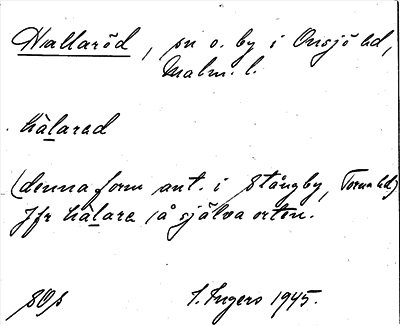 Hallaröd, sn o. by i Onsjö hd,
Malm. l.
hàlarad
(denna form ant. i Stångby, Torna hd)
Jfr hàlara på själva orten.
sOs
I. Ingers 1945.